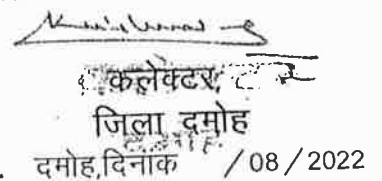 कलेक्टर,
जिला दमोह
दमोह,दिनांक /08/2022